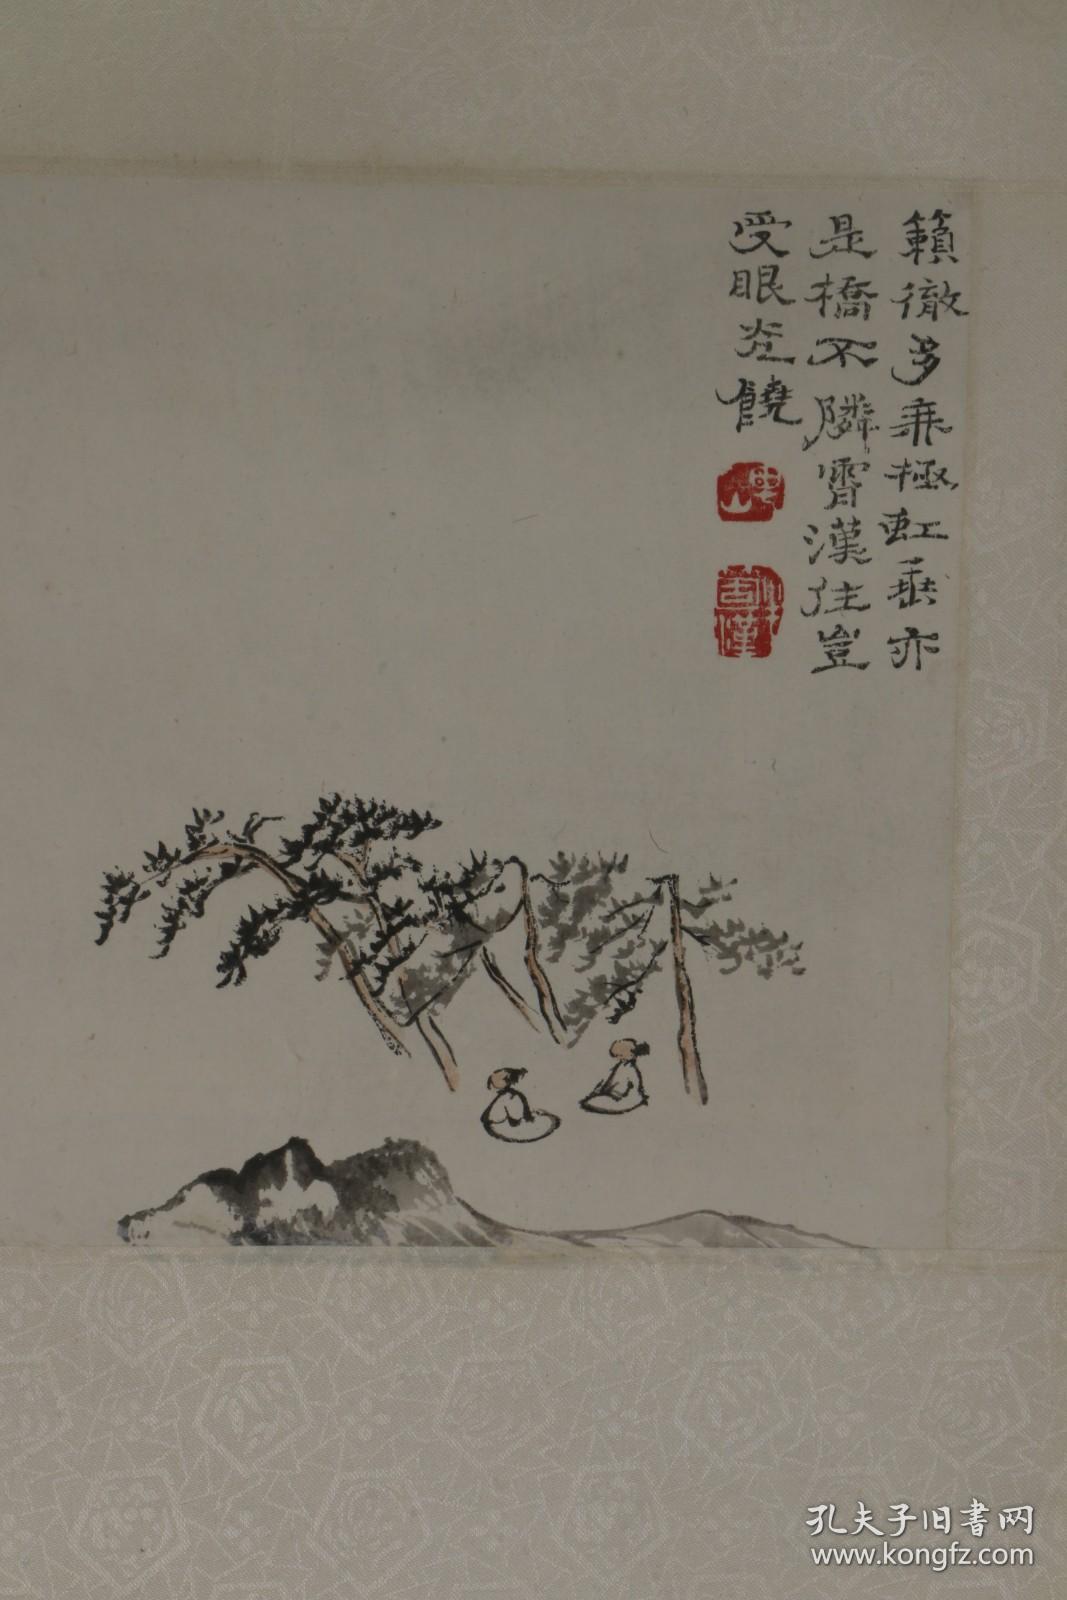 籟徹多乘極虹垂亦
是橋不隣霄漢住豈
受眼光饒
孔夫子旧书网
www.kongfz.com